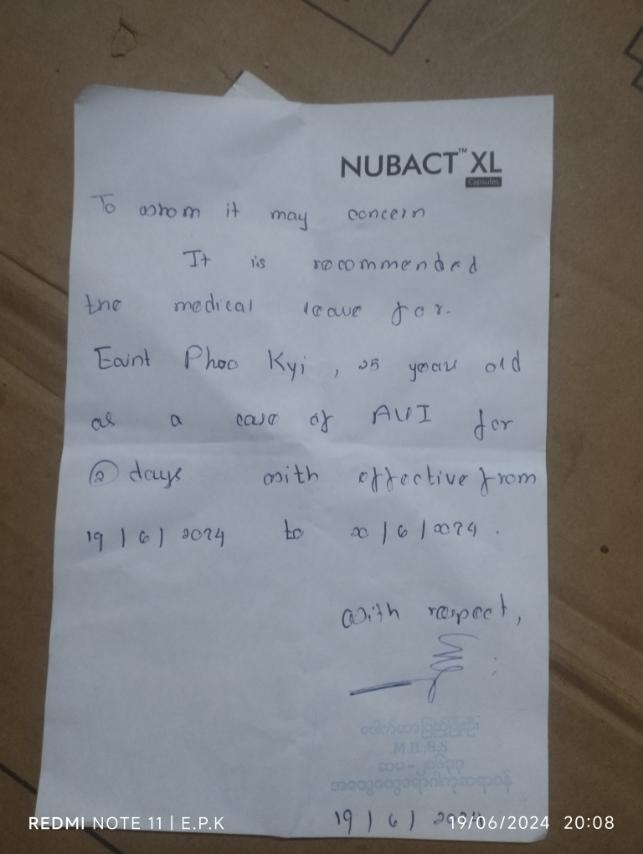 NUBACT™ XL
Capsules
To whom it may concern
It is recommended
the medical leave for.
Eaint Phoo Kyi, 25 years old
as a case of AVI for
② days with effective from
19/6/2024 to 20/6/2024.
with respect,
M.B.,B.S
အထွေထွေရောဂါကုဆရာဝန်
19/6/2024
REDMI NOTE 11 | E.P.K
19/06/2024 20:08